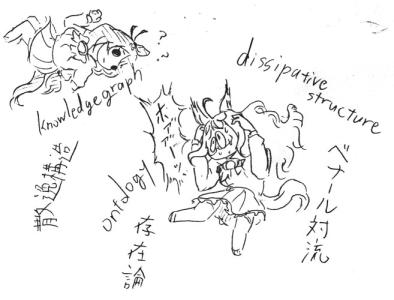 ??
knowledgegraph
dissipative
structure
散逸構造
ontology
存在論
ベナール対流